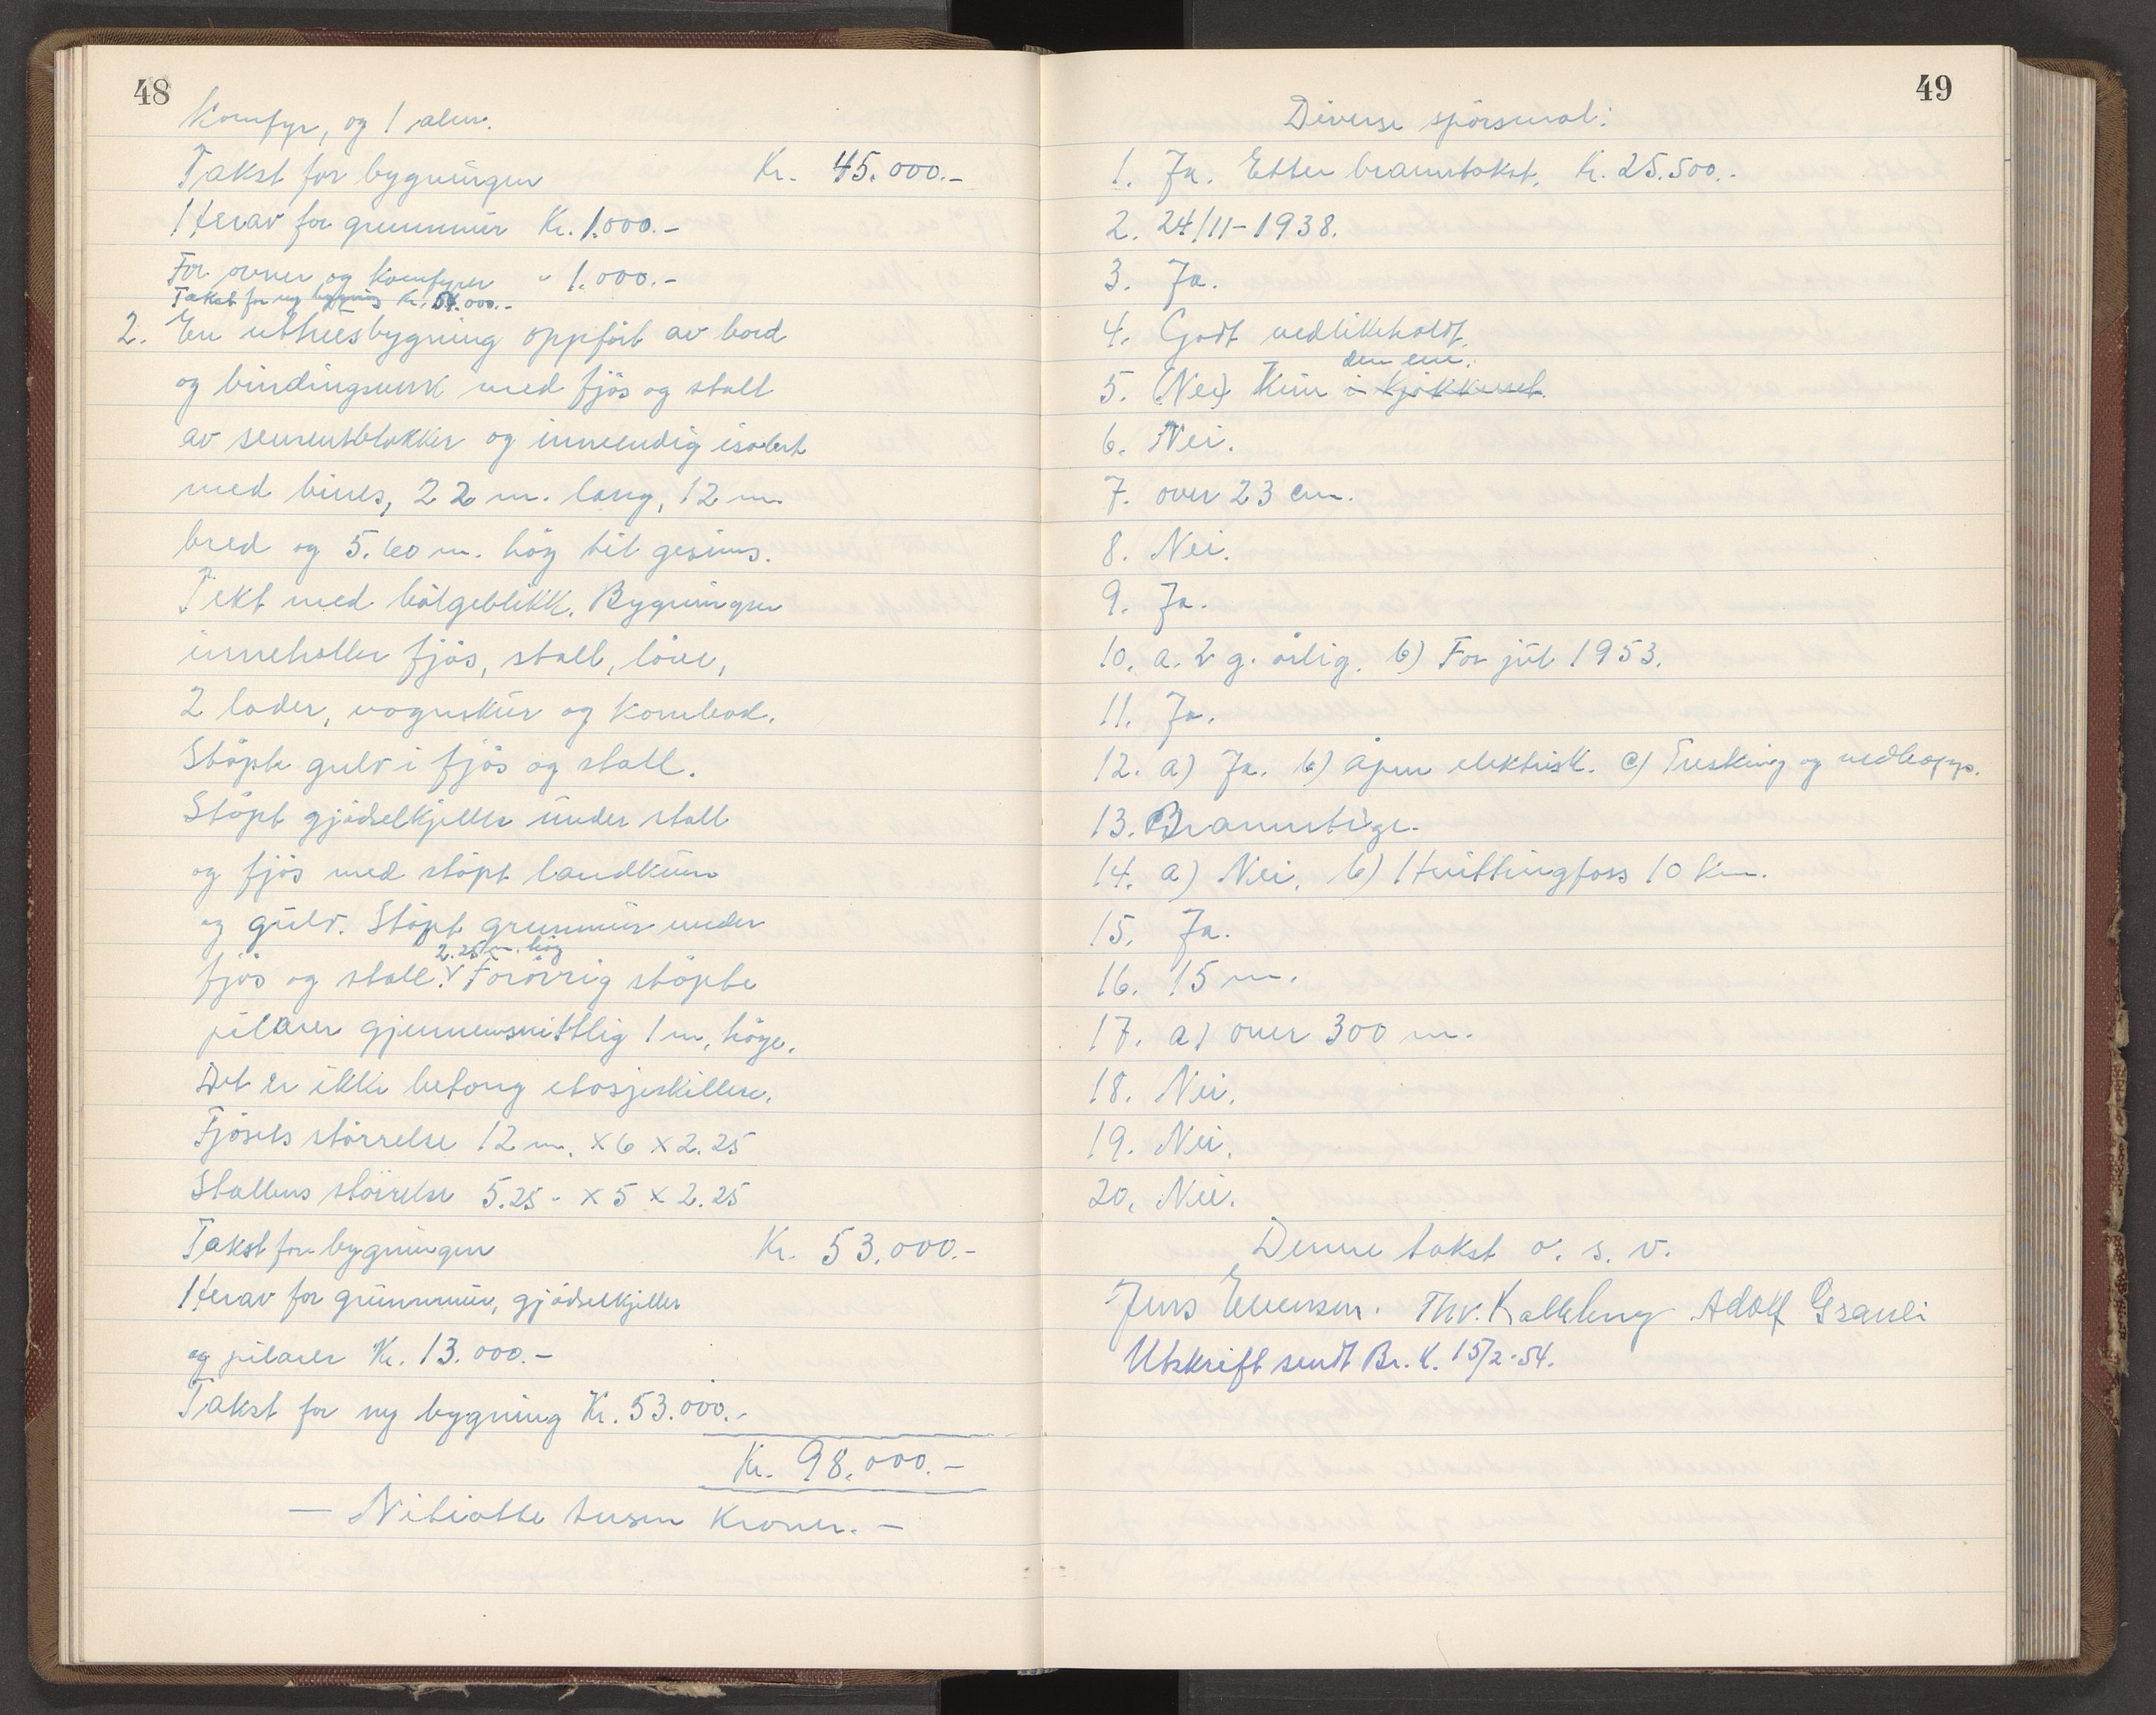 48
Komfyr, og 1 alm.
Takst for bygningen Kr. 45.000.-
Herav for grunnmur Kr. 1.000.-
For ovner og komfyrer " 1.000.-
Takst for ny bygning Kr. 54.000.-
2. En uthusbygning oppført av bord
og bindingsverk med fjøs og stall
av sementblokker og innvendig isolert
med bines, 22 m. lang, 12 m.
bred og 5.60 m. høg til gesims.
Tekt med bølgeblikk. Bygningen
inneholler fjøs, stall, låve,
2 lader, vognskur og kornbod.
Støpte gulv i fjøs og stall.
Støpt gjødselkjeller under stall
og fjøs med støpt landkum
og gulv. Støpt grunnmur under
2.25 m. høg
fjøs og stall. v Forøvrig støpte
pilarer gjennemsnittlig 1 m. høge.
Det er ikke betong etasjeskillere.
Fjøsets størrelse 12 m. x 6 x 2.25
Stallens størrelse 5.25 - x 5 x 2.25
Takst for bygningen Kr. 53.000.-
Herav for grunnmur, gjødselkjeller
og pilarer Kr. 13.000.-
Takst for ny bygning Kr. 53.000.-
Kr. 98.000.-
- Nitiotte tusen kroner. -
49
Diverse spørsmal:
1. Ja. Etter branntakst. Kr. 25.500.-
2. 24/11-1938.
3. Ja.
4. Godt vedlikeholdt.
den ene.
5. (Nei) Kun i kjøkkenet.
6. Nei.
7. over 23 cm.
8. Nei.
9. Ja.
10. a. 2 g. årlig. b) Før jul 1953.
11. Ja.
12. a) Ja. b) åpen elektrisk. c) Tresking og vedkapp.
13. Brannstige.
14. a) Nei. b) Hvittingfoss 10 km.
15. Ja.
16. 15 m.
17. a) over 300 m.
18. Nei.
19. Nei.
20. Nei.
Denne takst o. s. v.
Jens Evensen. Thv. Kalleberg Adolf Granli
Utskrift sendt Br. K. 15/2-54.